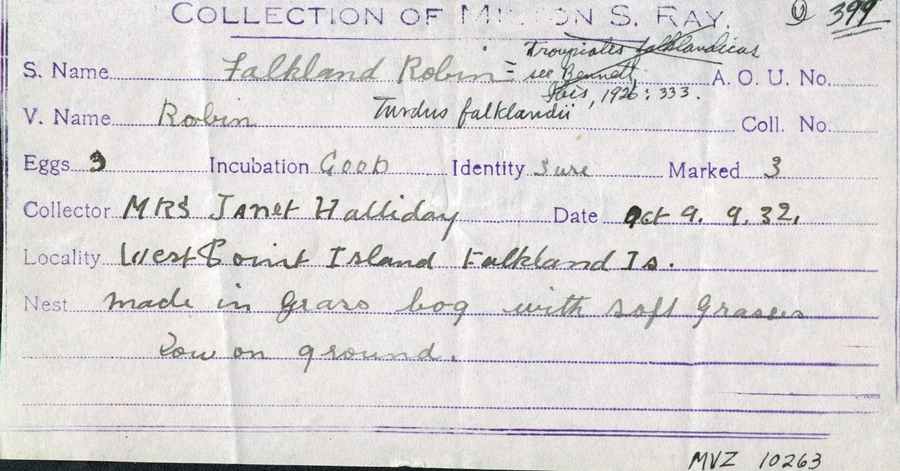 COLLECTION OF MILTON S. RAY. 399
Troupiales falklandicus
S. Name Falkland Robin = see Bennett, A. O. U. No.
Ibis, 1926: 333.
V. Name Robin Turdus falklandii Coll. No.
Eggs 3 Incubation Good Identity Sure Marked 3
Collector MRS Janet Halliday Date Oct 9. 9.32.
Locality West Point Island Falkland Is.
Nest made in grass bog with soft grasses
Low on ground.
MVZ 10263